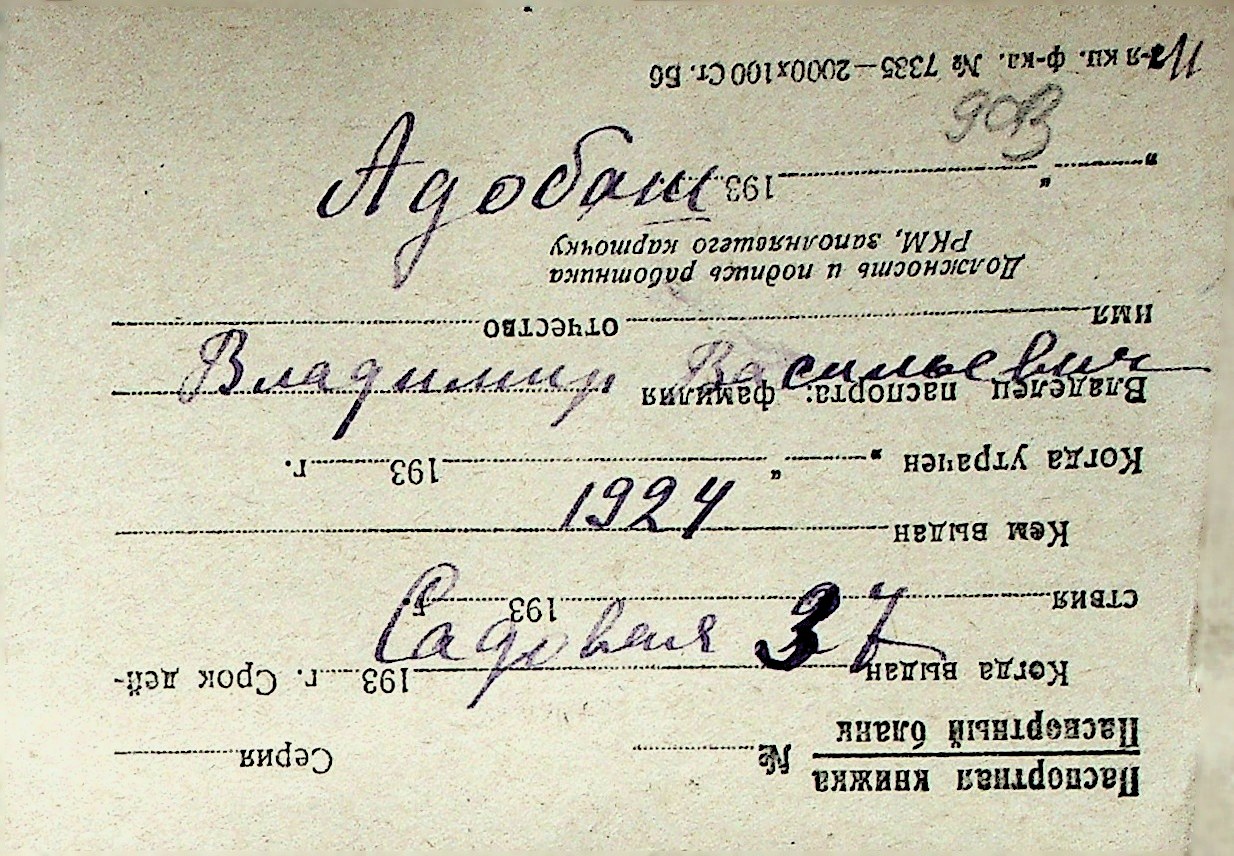 Адобаш
Владимир Васильевич
1924
Садовая 37
Паспортная книжка
Паспортный бланк
№ Серия
Когда выдан 193 г. Срок дей-
ствия 193 г.
Кем выдан
Когда утрачен „ “ 193 г.
Владелец паспорта: фамилия
имя отчество
Должность и подпись работника
РКМ, заполнявшего карточку
„ “ 193
кп. ф-ка. № 7335—2000x100 Ст. Б6